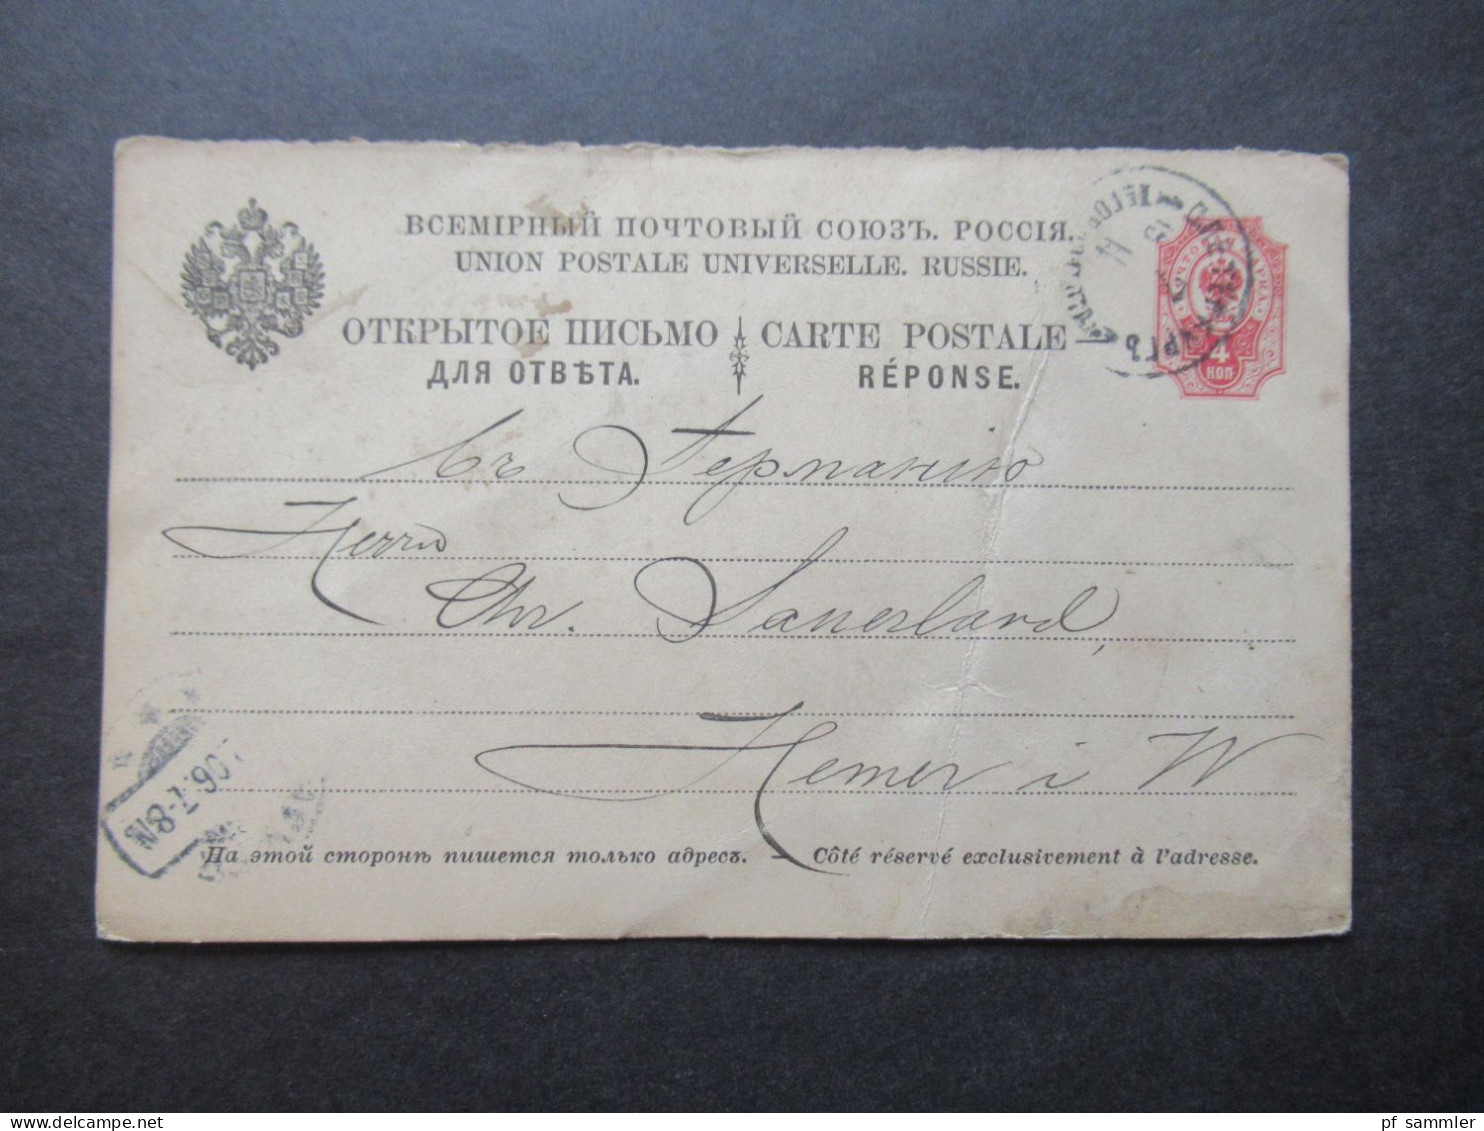 ВСЕМІРНЫЙ ПОЧТОВЫЙ СОЮЗЪ. РОССІЯ.
UNION POSTALE UNIVERSELLE. RUSSIE.
ОТКРЫТОЕ ПИСЬМО CARTE POSTALE
ДЛЯ ОТВѢТА. RÉPONSE.
4
КОП.
Въ Германію
Herrn
Chr. Sauerland,
Hemer i W
На этой сторонѣ пишется только адресъ. — Côté réservé exclusivement à l'adresse.
pf_sammler